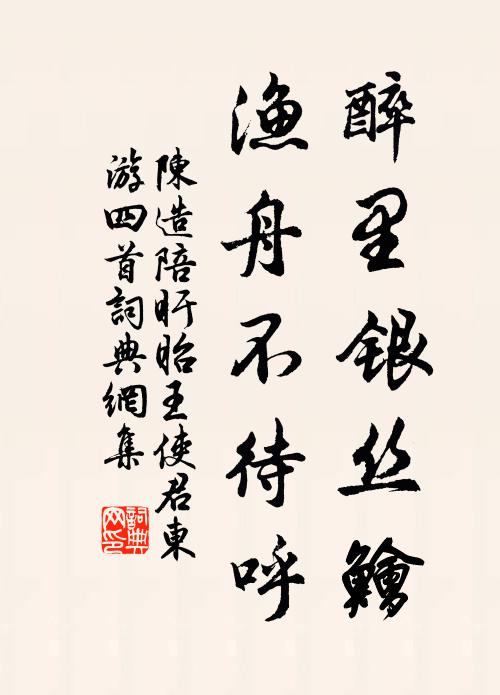 醉里银丝鱠
渔舟不待呼
陳造陪盱眙王使君東
游四首詞典網集
詞典网印